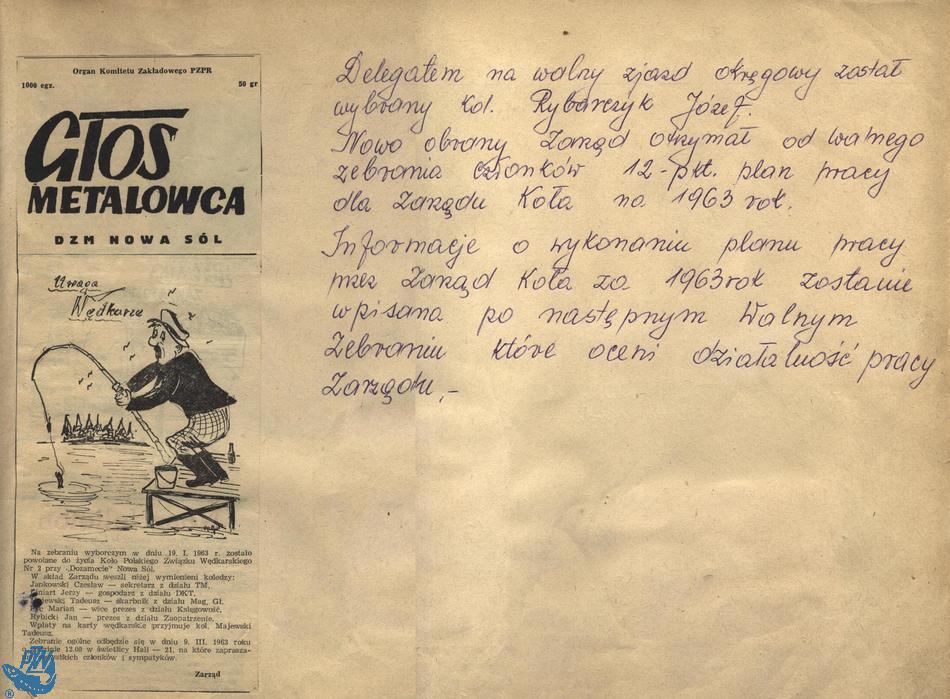 Organ Komitetu Zakładowego PZPR
1000 egz. 50 gr
Głos
METALOWCA
DZM NOWA SÓL
Uwaga
Wędkarze
Na zebraniu wyborczym w dniu 19. I. 1963 r. zostało
powołane do życia Koło Polskiego Związku Wędkarskiego
Nr 2 przy „Dozamecie" Nowa Sól.
W skład Zarządu weszli niżej wymienieni koledzy:
Jankowski Czesław — sekretarz z działu TM,
Jerzy — gospodarz z działu DKT,
Tadeusz — skarbnik z działu Mag. Gł.
Marian — wice prezes z działu Księgowość,
Rybicki Jan — prezes z działu Zaopatrzenie.
Wpłaty na karty wędkarskie przyjmuje kol. Majewski
Tadeusz.
Zebranie ogólne odbędzie się w dniu 9. III. 1963 roku
13.00 w świetlicy Hali — 21, na które zaprasza-
członków i sympatyków.
Zarząd
Delegatem na walny zjazd okręgowy został
wybrany kol. Rybarczyk Józef.
Nowo obrany Zarząd otrzymał od walnego
zebrania członków 12-pkt. plan pracy
dla Zarządu Koła na 1963 rok.
Informacje o wykonaniu planu pracy
przez Zarząd Koła za 1963 rok zostanie
wpisana po następnym Walnym
Zebraniu które oceni działalność pracy
Zarządu,-